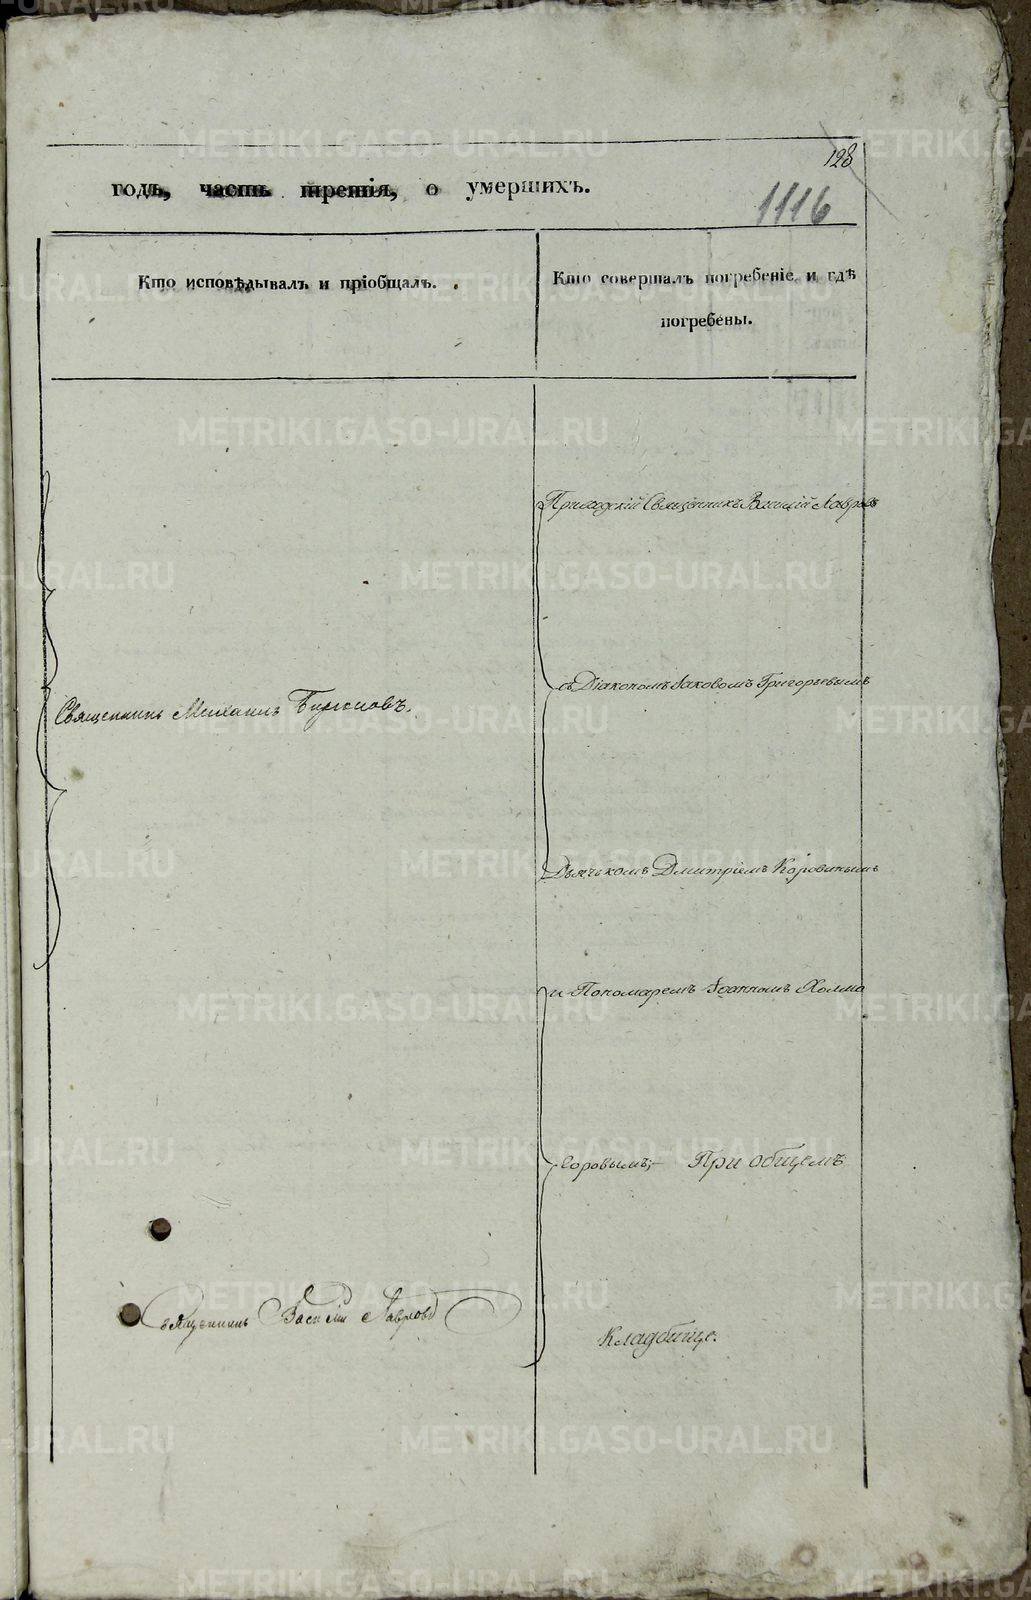 128
годъ, часть третія, о умершихъ.
1116
Кто исповѣдывалъ и пріобщалъ.
Кто совершалъ погребеніе и гдѣ
погребены.
Священникъ Михаилъ
Священникъ Василій Лавровъ
Приходскій Священникъ Василій Лавровъ
съ Діакономъ Іаковомъ Григорьевымъ
Дьячькомъ Дмитріемъ Коровинымъ
и Пономаремъ Іоанномъ Холмо
горовымъ;– При общемъ
Кладбище.
METRIKI.GASO-URAL.RU